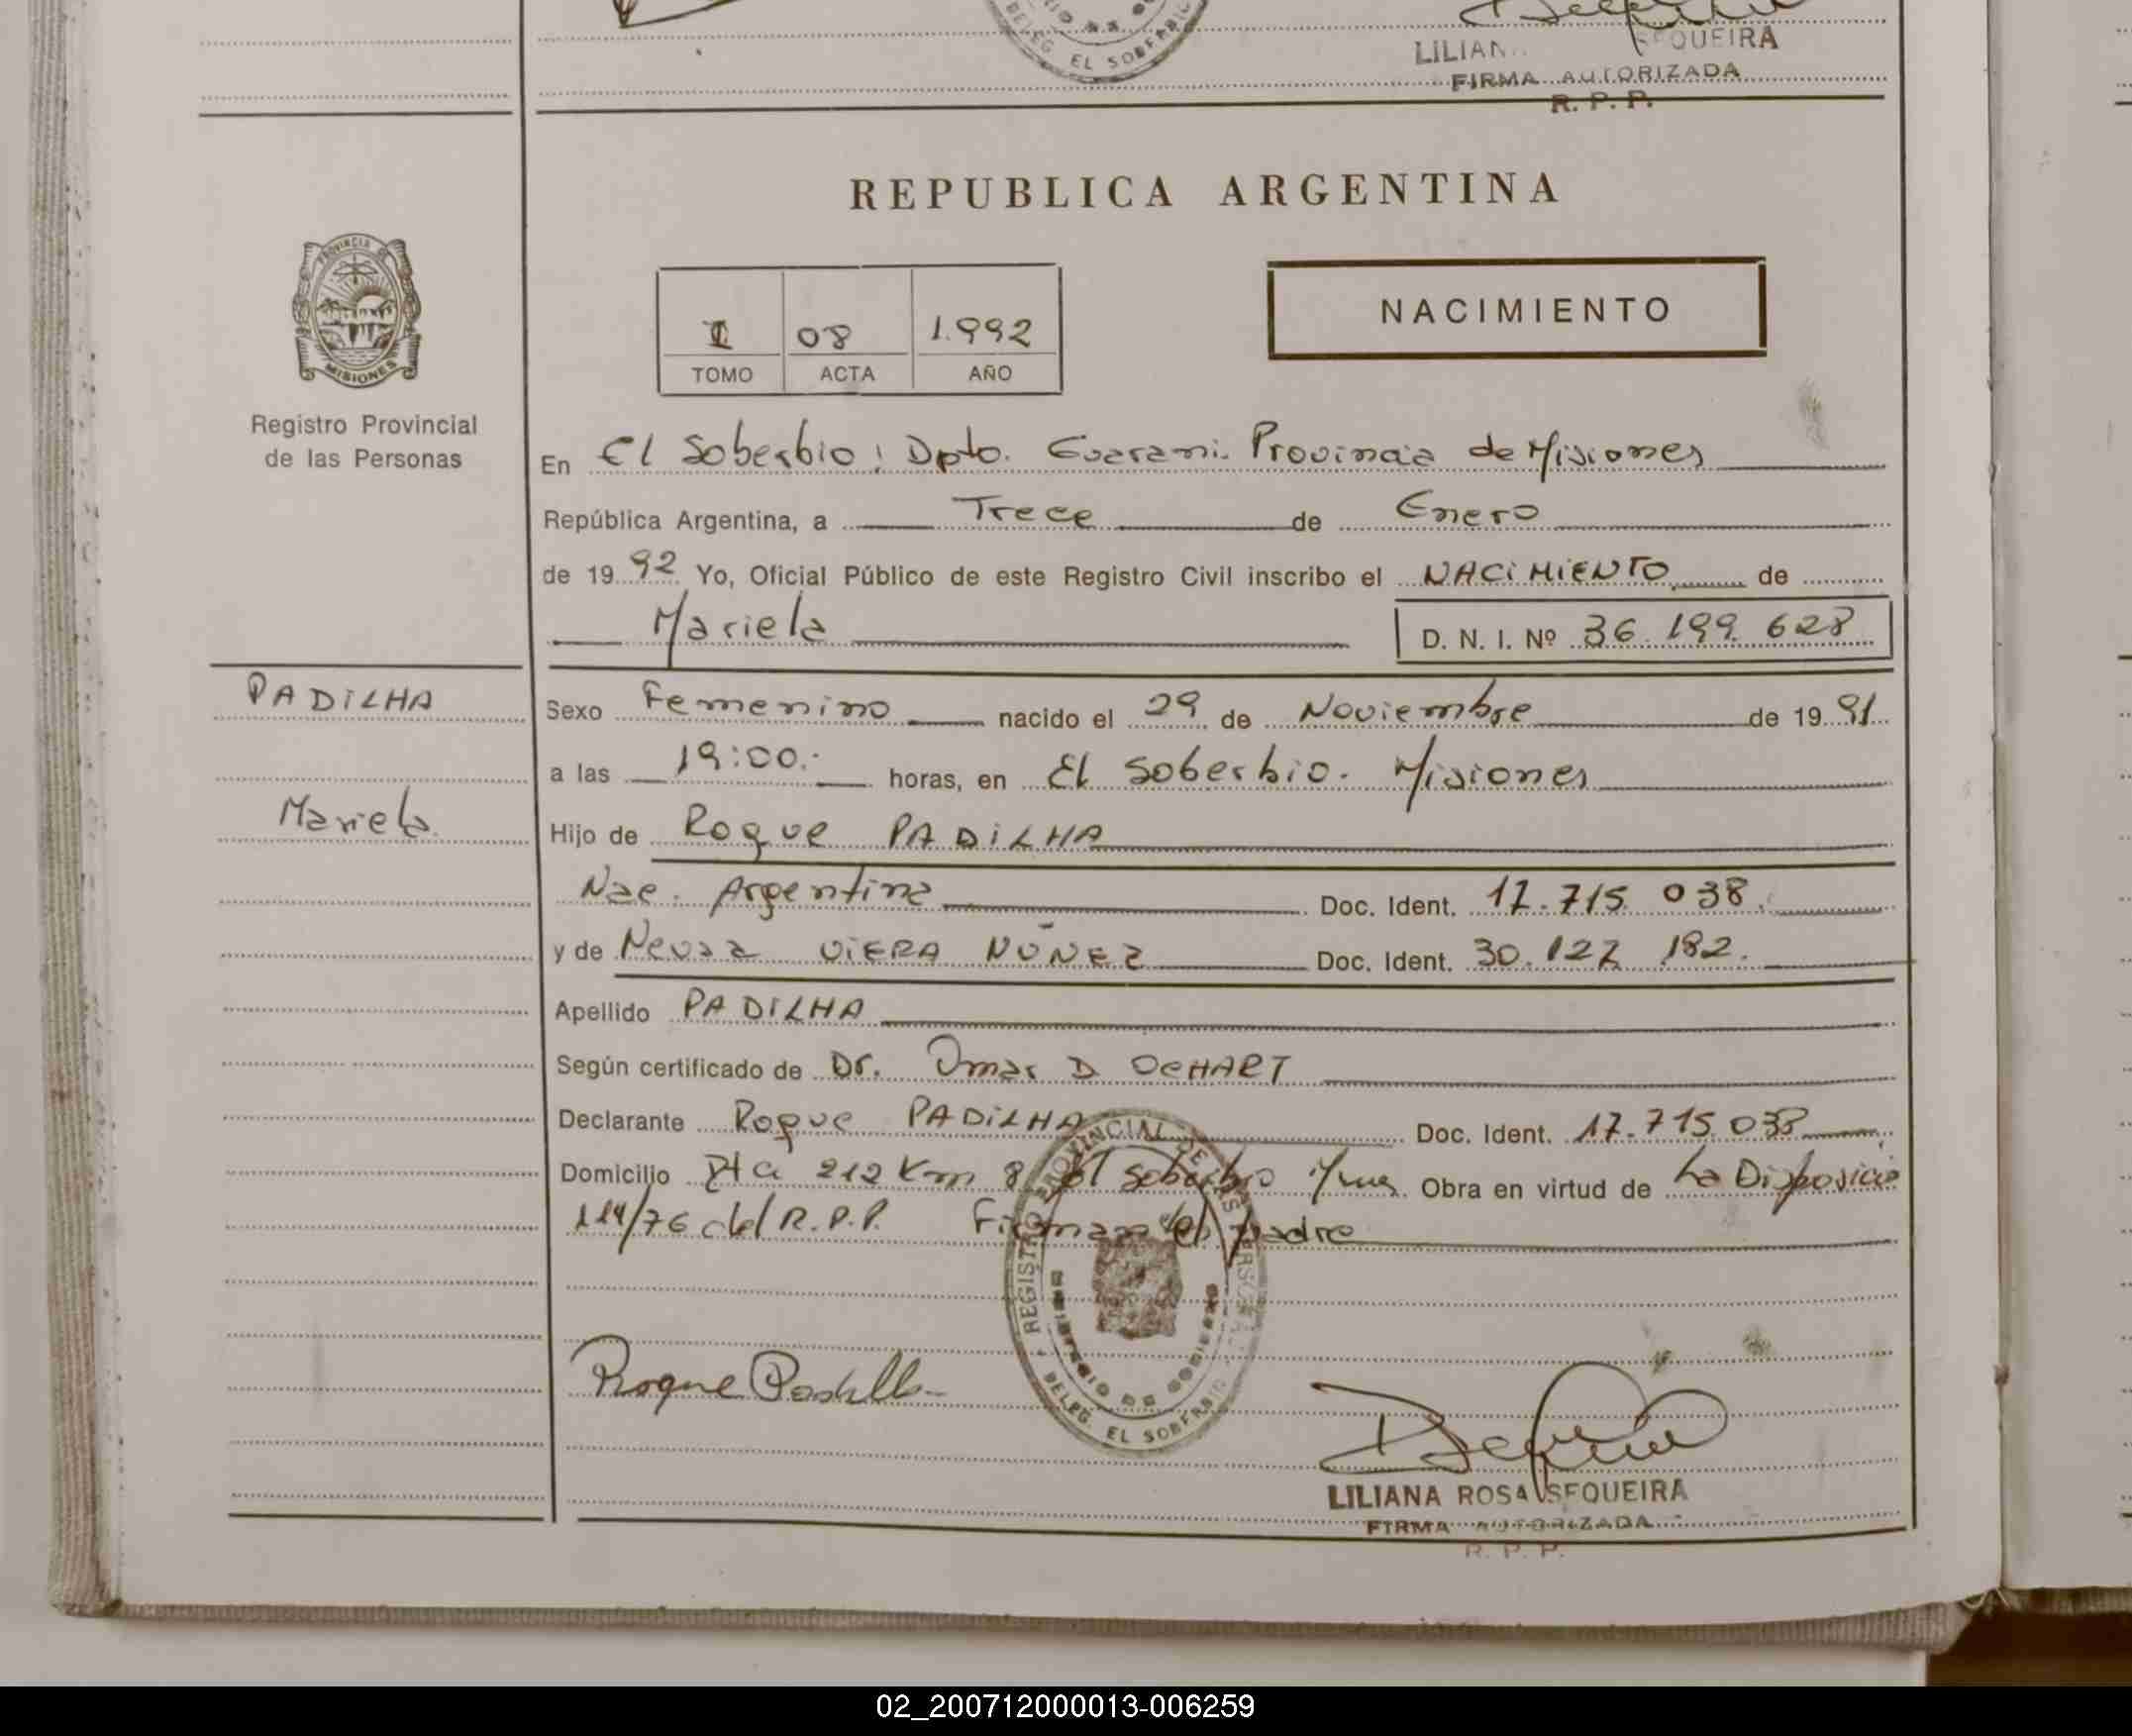 DELEG. EL SOBERBIO
LILIANA SEQUEIRA
FIRMA AUTORIZADA
R. P. P.
REPUBLICA ARGENTINA
PROVINCIA DE
MISIONES
Registro Provincial
de las Personas
I 08 1.992
TOMO ACTA AÑO
NACIMIENTO
En El Soberbio; Dpto. Guarani. Provincia de Misiones
República Argentina, a Trece de Enero
de 1992 Yo, Oficial Público de este Registro Civil inscribo el NACIMIENTO de
Mariela D. N. I. Nº 36.199.628
PADILHA
Mariela
Sexo Femenino nacido el 29 de Noviembre de 1991
a las 19:00.- horas, en El Soberbio. Misiones
Hijo de Roque PADILHA
Nac. Argentina Doc. Ident. 17.715.038.
y de Neusa VIERA NUÑEZ Doc. Ident. 30.127.182.
Apellido PADILHA
Según certificado de Dr. Omar D OCHART
Declarante Roque PADILHA Doc. Ident. 17.715.038
Domicilio Rta 212 Km 8 El Soberbio Mnes. Obra en virtud de La Disposicio
114/76 del R.P.P. Firman el padre
REGISTRO PROVINCIAL DE LAS PERSONAS
MINISTERIO DE GOBIERNO
DELEG. EL SOBERBIO
Roque Padilha
LILIANA ROSA SEQUEIRA
FIRMA AUTORIZADA
R. P. P.
02_200712000013-006259